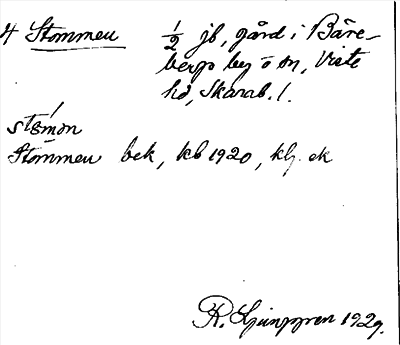 4 Stommen ½ jb, gård i Bäre-
bergs by o sn, Viste
hd, Skarab. l.
stømon
Stommen bek, kb 1920, klj. ek
R. Ljunggren 1929.